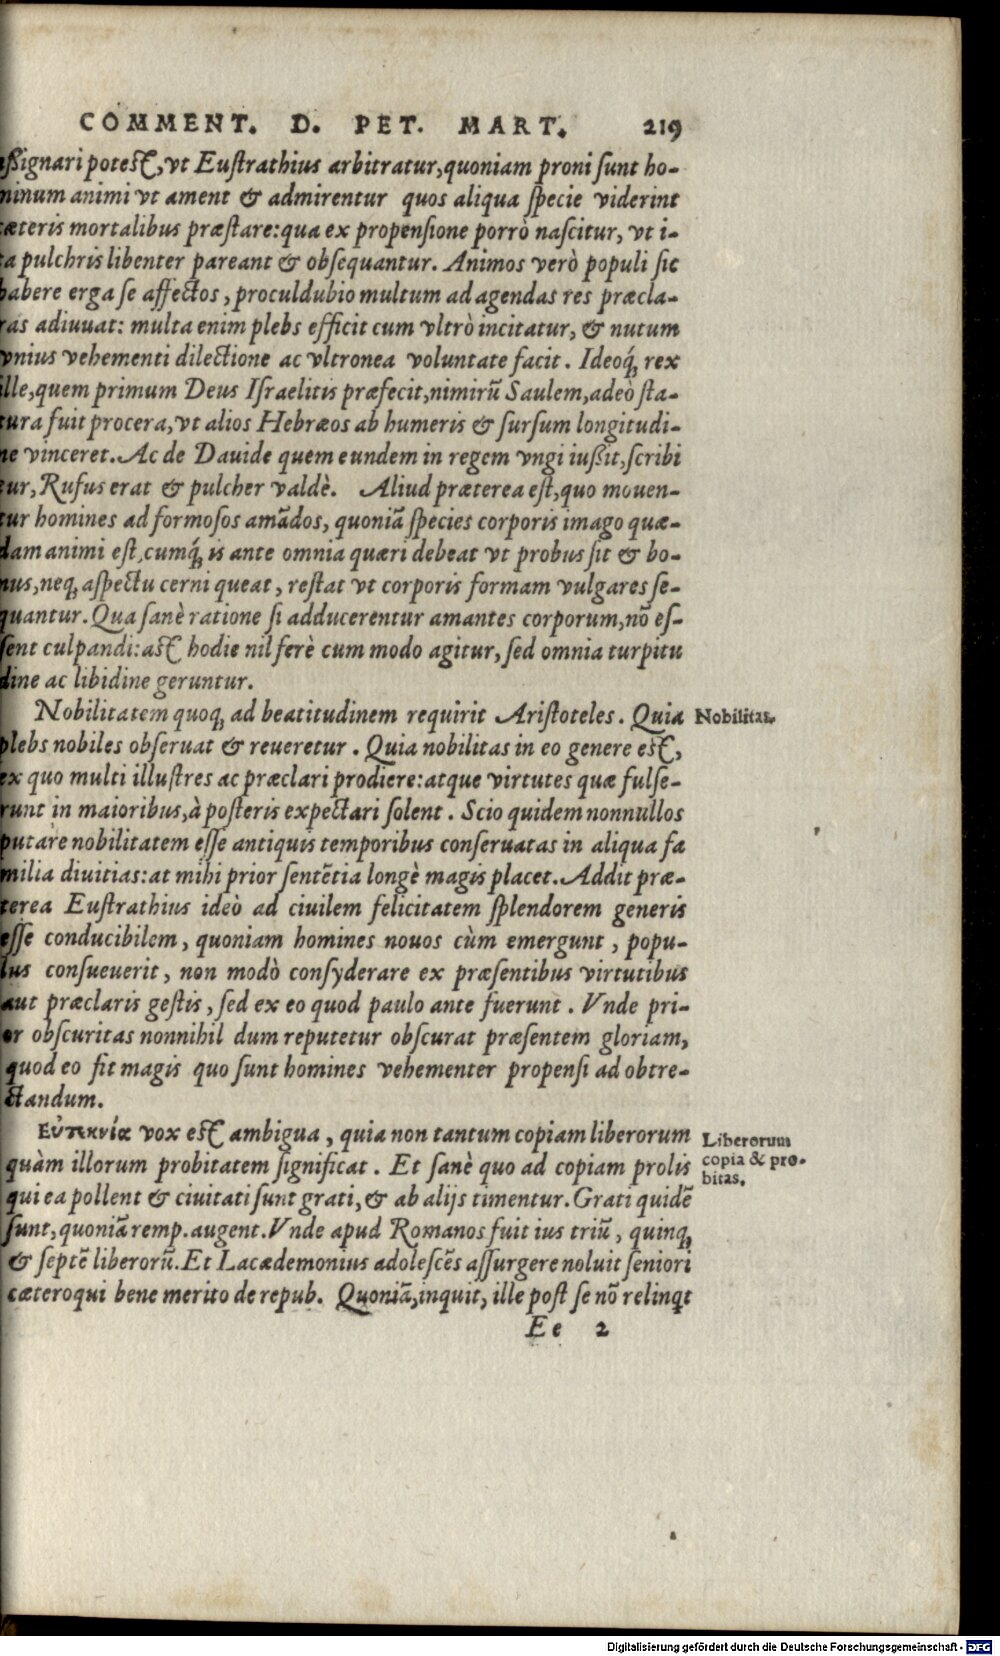 COMMENT. D. PET. MART. 219
ßignari potest, vt Eustrathius arbitratur, quoniam proni sunt ho-
ninum animi vt ament & admirentur quos aliqua specie viderint
cæteris mortalibus præstare: qua ex propensione porrò nascitur, vt i-
ta pulchris libenter pareant & obsequantur. Animos verò populi sic
habere erga se affectos, proculdubio multum ad agendas res præcla-
ras adiuuat: multa enim plebs efficit cum vltrò incitatur, & nutum
vnius vehementi dilectione ac vltronea voluntate facit. Ideoq́; rex
ille, quem primum Deus Israelitis præfecit, nimirũ Saulem, adeò sta-
tura fuit procera, vt alios Hebræos ab humeris & sursum longitudi-
ne vinceret. Ac de Dauide quem eundem in regem vngi iußit, scribi
tur, Rufus erat & pulcher valdè. Aliud præterea est, quo mouen-
tur homines ad formosos amãdos, quoniã species corporis imago quæ-
dam animi est, cumq́; is ante omnia quæri debeat vt probus sit & bo-
nus, neq; aspectu cerni queat, restat vt corporis formam vulgares se-
quantur. Qua sanè ratione si adducerentur amantes corporum, nõ es-
sent culpandi: ast hodie nil ferè cum modo agitur, sed omnia turpitu
dine ac libidine geruntur.
Nobilitatem quoq; ad beatitudinem requirit Aristoteles. Quia
Nobilitas.
plebs nobiles obseruat & reueretur. Quia nobilitas in eo genere est,
ex quo multi illustres ac præclari prodiere: atque virtutes quæ fulse-
runt in maioribus, à posteris expectari solent. Scio quidem nonnullos
putare nobilitatem esse antiquis temporibus conseruatas in aliqua fa
milia diuitias: at mihi prior sentẽtia longè magis placet. Addit præ-
terea Eustrathius ideò ad ciuilem felicitatem splendorem generis
esse conducibilem, quoniam homines nouos cùm emergunt, popu-
lus consueuerit, non modò consyderare ex præsentibus virtutibus
aut præclaris gestis, sed ex eo quod paulo ante fuerunt. Vnde pri-
or obscuritas nonnihil dum reputetur obscurat præsentem gloriam,
quod eo fit magis quo sunt homines vehementer propensi ad obtre-
ctandum.
Εὐτεκνία vox est ambigua, quia non tantum copiam liberorum
Liberorum
copia & pro-
bitas.
quàm illorum probitatem significat. Et sanè quo ad copiam prolis
qui ea pollent & ciuitati sunt grati, & ab alijs timentur. Grati quidẽ
sunt, quoniã remp. augent. Vnde apud Romanos fuit ius triũ, quinq;
& septẽ liberorũ. Et Lacædemonius adolescẽs assurgere noluit seniori
cæteroqui bene merito de repub. Quoniã, inquit, ille post se nõ relinqt
Ee 2
Digitalisierung gefördert durch die Deutsche Forschungsgemeinschaft - DFG